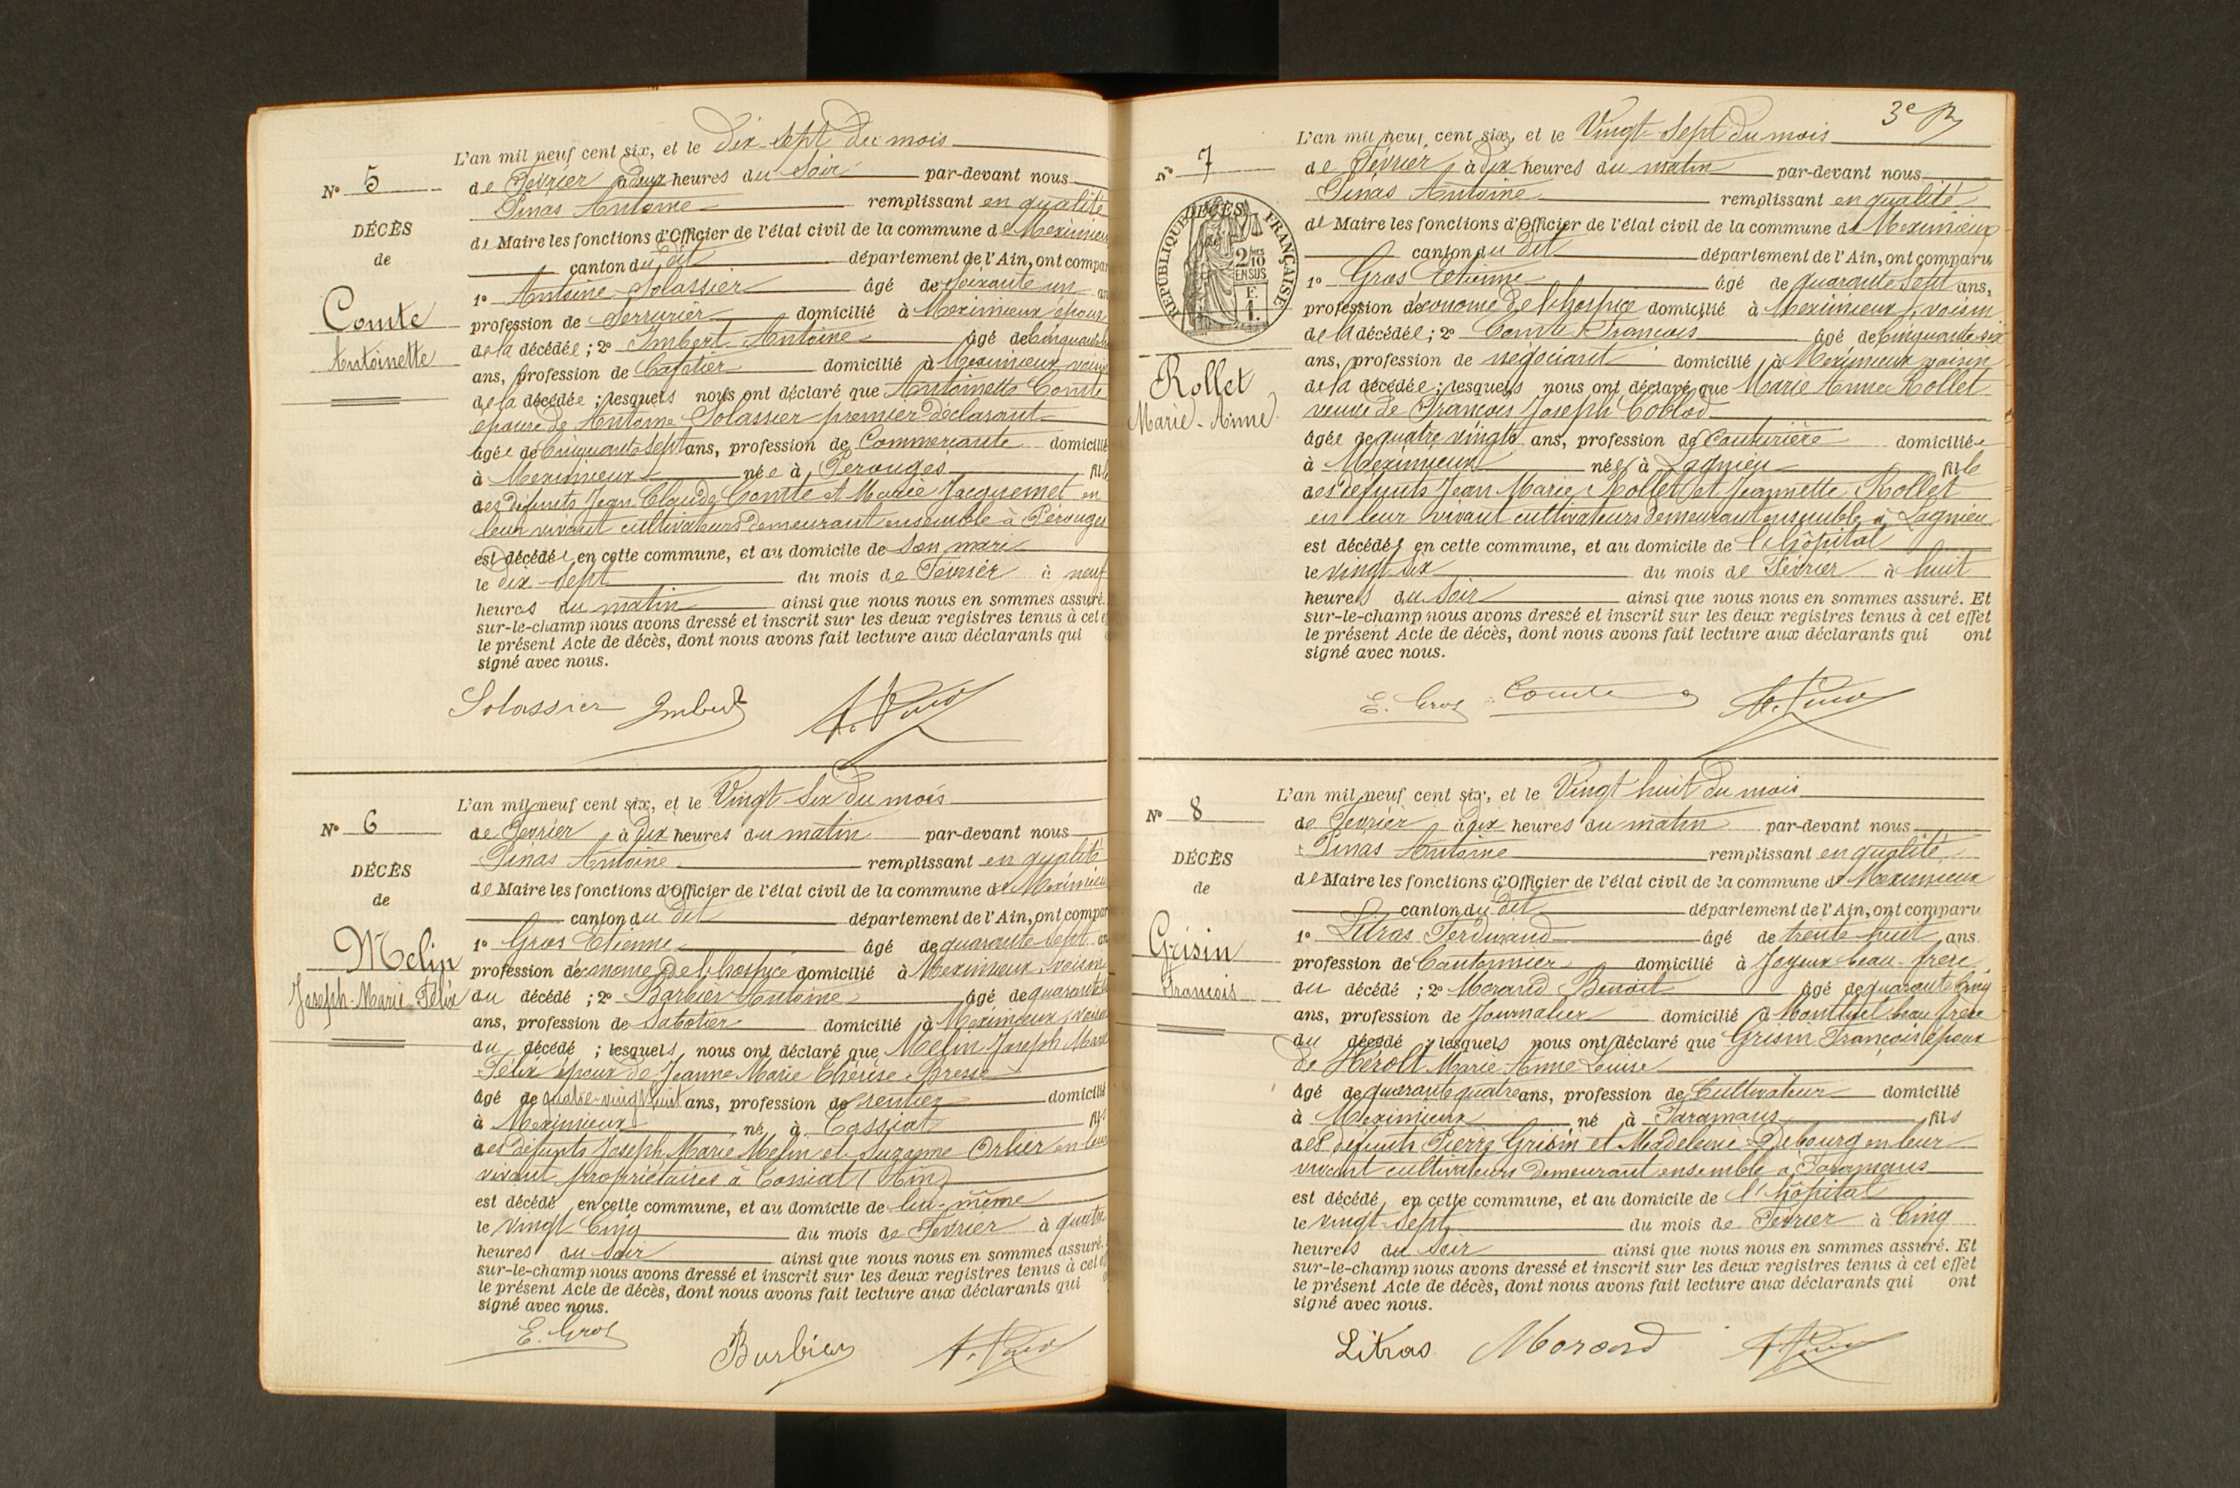 L'an mil neuf cent six, et le Dix-sept du mois
N° 5
de Février à deux heures du Soir par-devant nous
Pinas Antoine remplissant en qualité
DÉCÈS
de Maire les fonctions d'Officier de l'état civil de la commune de Meximieux
de
canton du dit département de l'Ain, ont compar
1° Antoine Solassier âgé de Soixante un an
Comte
profession de Serrurier domicilié à Meximieux époux
de la décédée ; 2° Imbert Antoine âgé de Cinquante
Antoinette
ans, profession de Cafetier domicilié à Meximieux voisin
de la décédée ; lesquels nous ont déclaré que Antoinette Comte
épouse de Antoine Solassier premier déclarant
âgée de Cinquante sept ans, profession de Commerçante domicilié
à Meximieux née à Pérouges fille
des défunts Jean Claude Comte et Marie Jacquemet en
leur vivant cultivateurs demeurant ensemble à Pérouges
est décédée en cette commune, et au domicile de son mari
le dix-sept du mois de Février à neuf
heures du matin ainsi que nous nous en sommes assuré.
sur-le-champ nous avons dressé et inscrit sur les deux registres tenus à cet e
le présent Acte de décès, dont nous avons fait lecture aux déclarants qui
signé avec nous.
Solassier Imbert
L'an mil neuf cent six, et le Vingt-Six du mois
N° 6
de Février à Dix heures du matin par-devant nous
Pinas Antoine remplissant en qualité
DÉCÈS
de Maire les fonctions d'Officier de l'état civil de la commune de Meximieux
de
canton du dit département de l'Ain, ont compar
1° Gros Etienne âgé de quarante sept an
Melin
profession d'économe de l'hospice domicilié à Meximieux voisin
Joseph-Marie-Félix
du décédé ; 2° Barbier Antoine âgé de quarante
ans, profession de Sabotier domicilié à Meximieux, voisin
du décédé ; lesquels nous ont déclaré que Melin Joseph Marie
Félix époux de Jeanne Marie Thérèse
âgé de quatre-vingt huit ans, profession de rentier domicilié
à Meximieux né à Cossiat fils
des défunts Joseph Marie Melin et Suzanne Orlier en leur
vivant propriétaires à Cossiat (Ain)
est décédé en cette commune, et au domicile de lui-même
le Vingt Cinq du mois de Février à quatre
heures du soir ainsi que nous nous en sommes assuré.
sur-le-champ nous avons dressé et inscrit sur les deux registres tenus à cet e
le présent Acte de décès, dont nous avons fait lecture aux déclarants qui
signé avec nous.
E. Gros Barbier
3e
L'an mil neuf cent six, et le Vingt-Sept du mois
N° 7
de Février à dix heures du matin par-devant nous
Pinas Antoine remplissant en qualité
RÉPUBLIQUE FRANÇAISE
DÉCÈS
2/10 EN SUS
F. 1.
de Maire les fonctions d'Officier de l'état civil de la commune de Meximieux
canton du dit département de l'Ain, ont comparu
1° Gros Etienne âgé de quarante Sept ans,
profession d'économe de l'hospice domicilié à Meximieux, voisin
de la décédée ; 2° Comte François âgé de Cinquante-six
ans, profession de négociant domicilié à Meximieux voisin
Rollet
de la décédée ; lesquels nous ont déclaré que Marie Anne Rollet
Marie-Anne
veuve de François Joseph
âgée de quatre vingts ans, profession de Couturière domiciliée
à Meximieux née à Lagnieu fille
des défunts Jean Marie Rollet et Jeannette Rollet
en leur vivant cultivateurs demeurant ensemble à Lagnieu
est décédée en cette commune, et au domicile de l'hôpital
le vingt six du mois de Février à huit
heures du Soir ainsi que nous nous en sommes assuré. Et
sur-le-champ nous avons dressé et inscrit sur les deux registres tenus à cet effet
le présent Acte de décès, dont nous avons fait lecture aux déclarants qui ont
signé avec nous.
E. Gros Comte
L'an mil neuf cent six, et le Vingt huit du mois
N° 8
de Février à dix heures du matin par-devant nous
Pinas Antoine remplissant en qualité
DÉCÈS
de Maire les fonctions d'Officier de l'état civil de la commune de Meximieux
de
canton du dit département de l'Ain, ont comparu
1° Litras Ferdinand âgé de trente huit ans
Grisin
profession de Cantonnier domicilié à Joyeux beau-frère
François
du décédé ; 2° Morand Benoit âgé de quarante cinq
ans, profession de Journalier domicilié à Montluel beau frère
du décédé ; lesquels nous ont déclaré que Grisin François époux
de Hérolt Marie Anne Louise
âgé de quarante quatre ans, profession de Cultivateur domicilié
à Meximieux né à Faramans fils
des défunts Pierre Grisin et Madeleine Debourg en leur
vivant cultivateurs demeurant ensemble à Faramans
est décédé en cette commune, et au domicile de l'hôpital
le vingt-sept du mois de Février à Cinq
heures du Soir ainsi que nous nous en sommes assuré. Et
sur-le-champ nous avons dressé et inscrit sur les deux registres tenus à cet effet
le présent Acte de décès, dont nous avons fait lecture aux déclarants qui ont
signé avec nous.
Litras Morand